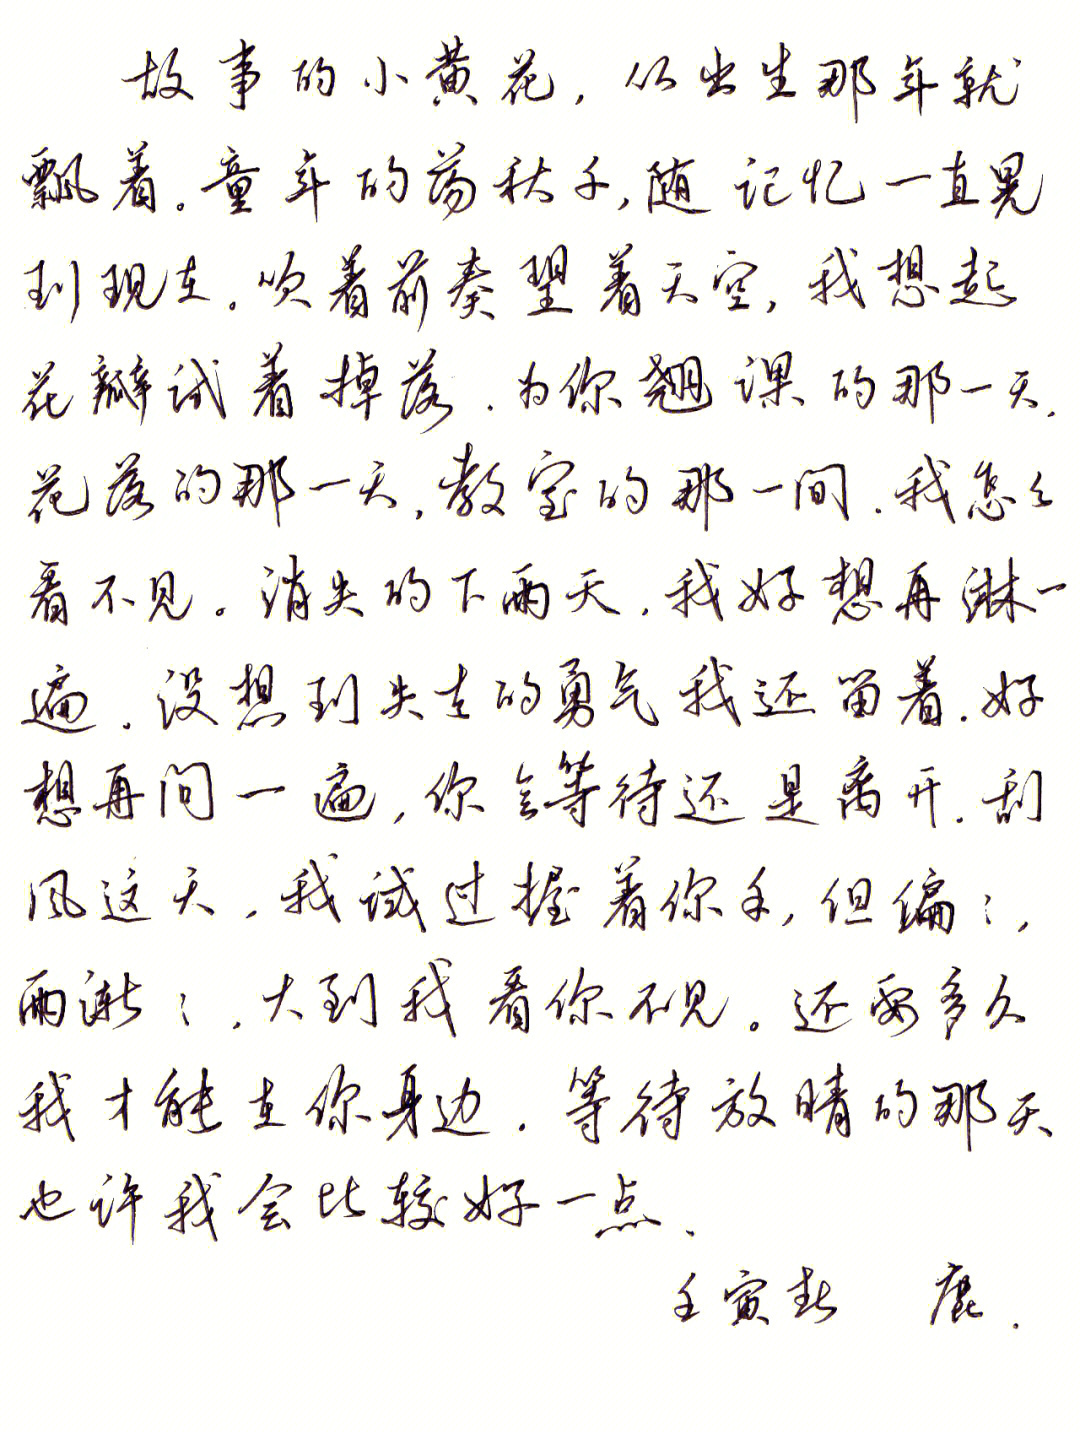 故事的小黄花，从出生那年就
飘着。童年的荡秋千，随记忆一直晃
到现在。吹着前奏望着天空，我想起
花瓣试着掉落．为你翘课的那一天．
花落的那一天，教室的那一间．我怎么
看不见。消失的下雨天，我好想再淋一
遍．没想到失去的勇气我还留着．好
想再问一遍，你会等待还是离开．刮
风这天，我试过握着你手，但偏〻，
雨渐〻，大到我看你不见。还要多久
我才能在你身边．等待放晴的那天
也许我会比较好一点．
壬寅春　鹿．